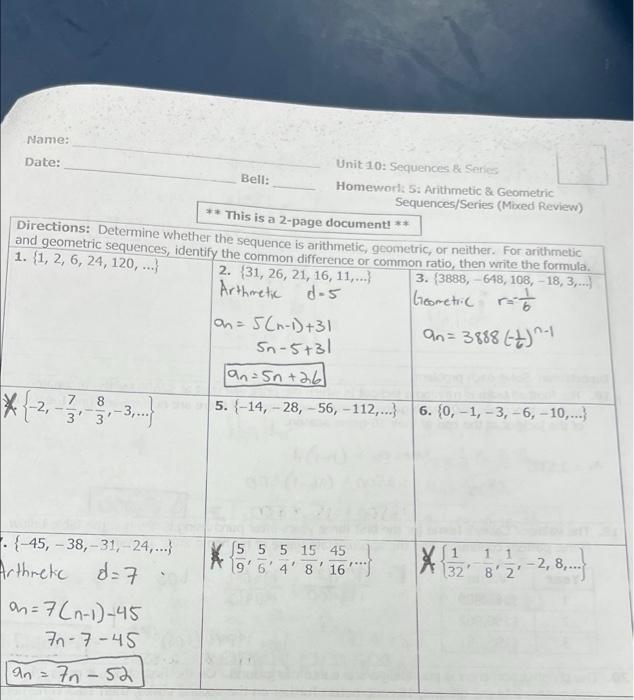 Name:
Date:
Bell:
Unit 10: Sequences & Series
Homework 5: Arithmetic & Geometric
Sequences/Series (Mixed Review)
** This is a 2-page document! **
Directions: Determine whether the sequence is arithmetic, geometric, or neither. For arithmetic
and geometric sequences, identify the common difference or common ratio, then write the formula.
1. {1, 2, 6, 24, 120, ...}
2. {31, 26, 21, 16, 11,...}
Arthmetic d=5
an= 5(n-1)+31
5n-5+31
an=5n+26
3. {3888, -648, 108, -18, 3,...}
Geometric r=-1/6
an= 3888(-1/6)^n-1
{-2, -7/3, -8/3, -3,...}
5. {-14, -28, -56, -112,...}
6. {0, -1, -3, -6, -10,...}
. {-45, -38, -31, -24,...}
Arthmetic d=7
an=7(n-1)-45
7n-7-45
an=7n-52
{5/9, 5/6, 5/4, 15/8, 45/16,...}
{1/32, -1/8, 1/2, -2, 8,...}